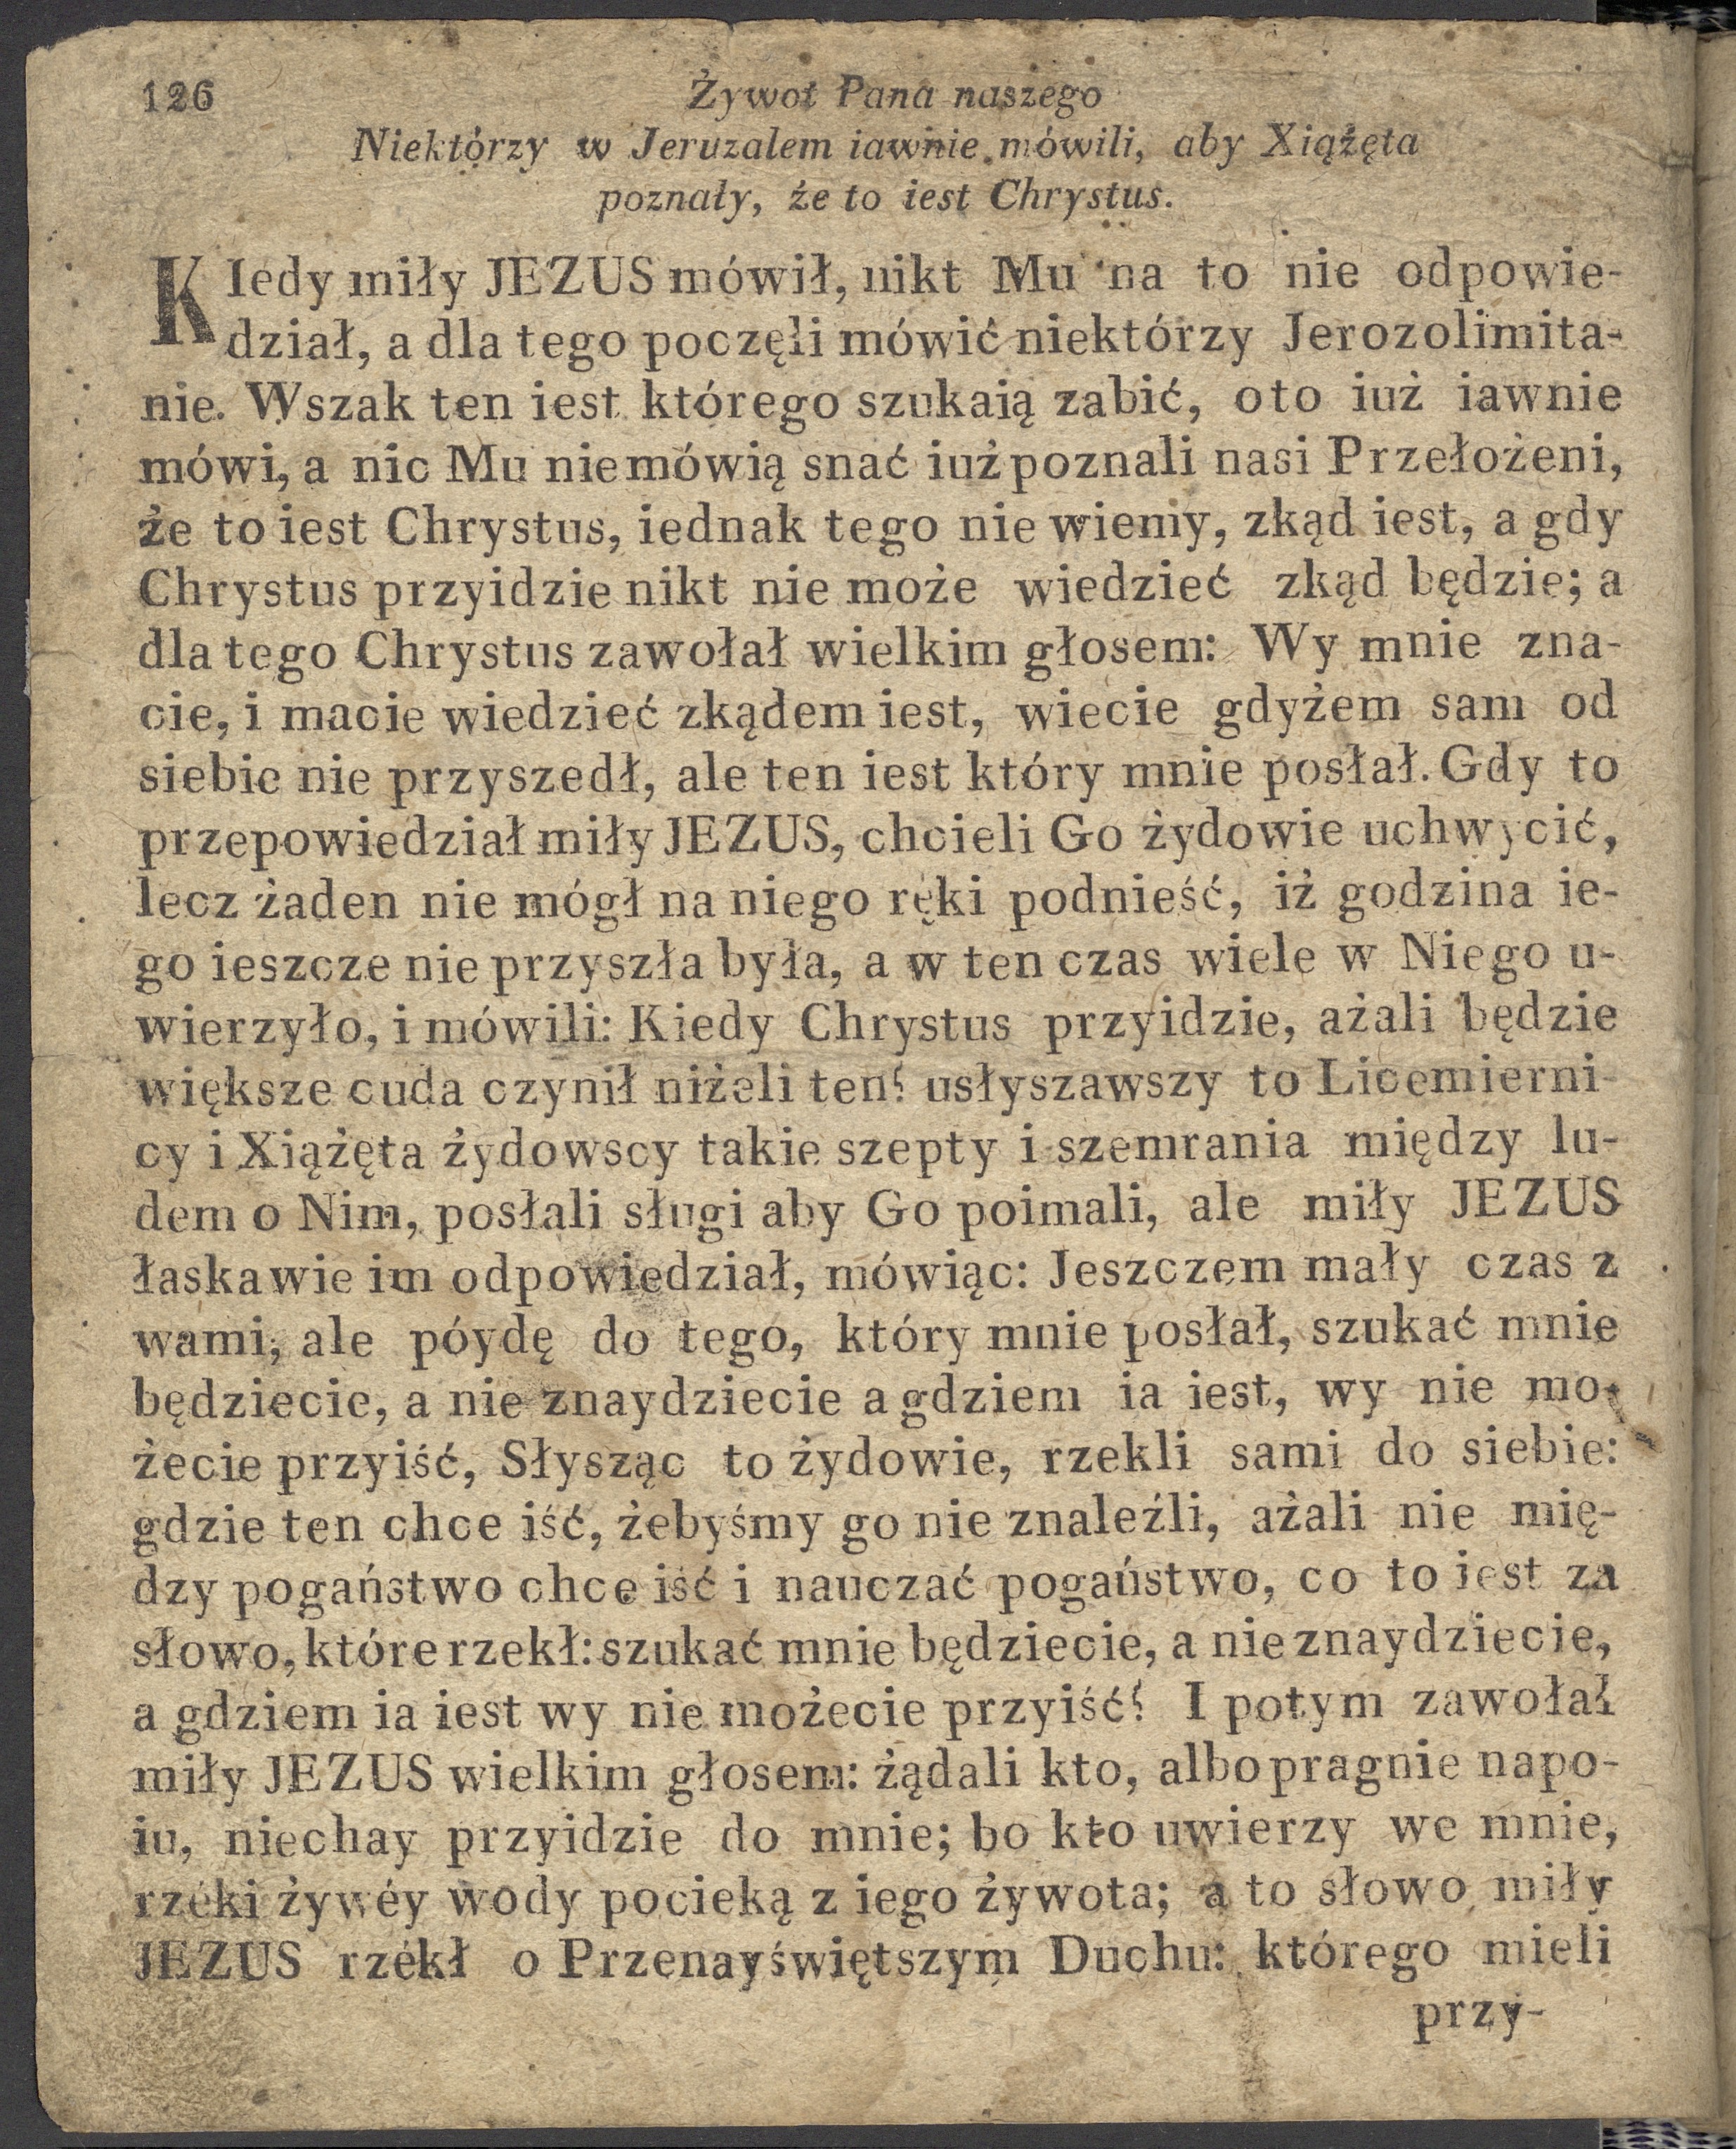 126 Żywot Pana naszego
Niektórzy w Jeruzalem iawnie mówili, aby Xiążęta
poznały, że to iest Chrystus.
KIedy miły JEZUS mówił, nikt Mu na to nie odpowie-
dział, a dla tego poczęli mówić niektórzy Jerozolimita-
nie. Wszak ten iest którego szukaią zabić, oto iuż iawnie
mówi, a nic Mu niemówią snać iuż poznali nasi Przełożeni,
że to iest Chrystus, iednak tego nie wiemy, zkąd iest, a gdy
Chrystus przyidzie nikt nie może wiedzieć zkąd będzie; a
dla tego Chrystus zawołał wielkim głosem: Wy mnie zna-
cie, i macie wiedzieć zkądem iest, wiecie gdyżem sam od
siebie nie przyszedł, ale ten iest który mnie posłał. Gdy to
przepowiedział miły JEZUS, chcieli Go żydowie uchwycić,
lecz żaden nie mógł na niego ręki podnieść, iż godzina ie-
go ieszcze nie przyszła była, a w ten czas wiele w Niego u-
wierzyło, i mówili: Kiedy Chrystus przyidzie, ażali będzie
większe cuda czynił niżeli ten? usłyszawszy to Licemierni-
cy i Xiążęta żydowscy takie szepty i szemrania między lu-
dem o Nim, posłali sługi aby Go poimali, ale miły JEZUS
łaskawie im odpowiedział, mówiąc: Jeszczem mały czas z
wami, ale póydę do tego, który mnie posłał, szukać mnie
będziecie, a nie znaydziecie a gdziem ia iest, wy nie mo-
żecie przyiść, Słysząc to żydowie, rzekli sami do siebie:
gdzie ten chce iść, żebyśmy go nie znaleźli, ażali nie mię-
dzy pogaństwo chce iść i nauczać pogaństwo, co to iest za
słowo, które rzekł: szukać mnie będziecie, a nie znaydziecie,
a gdziem ia iest wy nie możecie przyiść? I potym zawołał
miły JEZUS wielkim głosem: żądali kto, albo pragnie napo-
iu, niechay przyidzie do mnie; bo kto uwierzy we mnie,
rzéki żywéy wody pocieką z iego żywota; a to słowo miły
JEZUS rzékł o Przenayświętszym Duchu: którego mieli
przy-